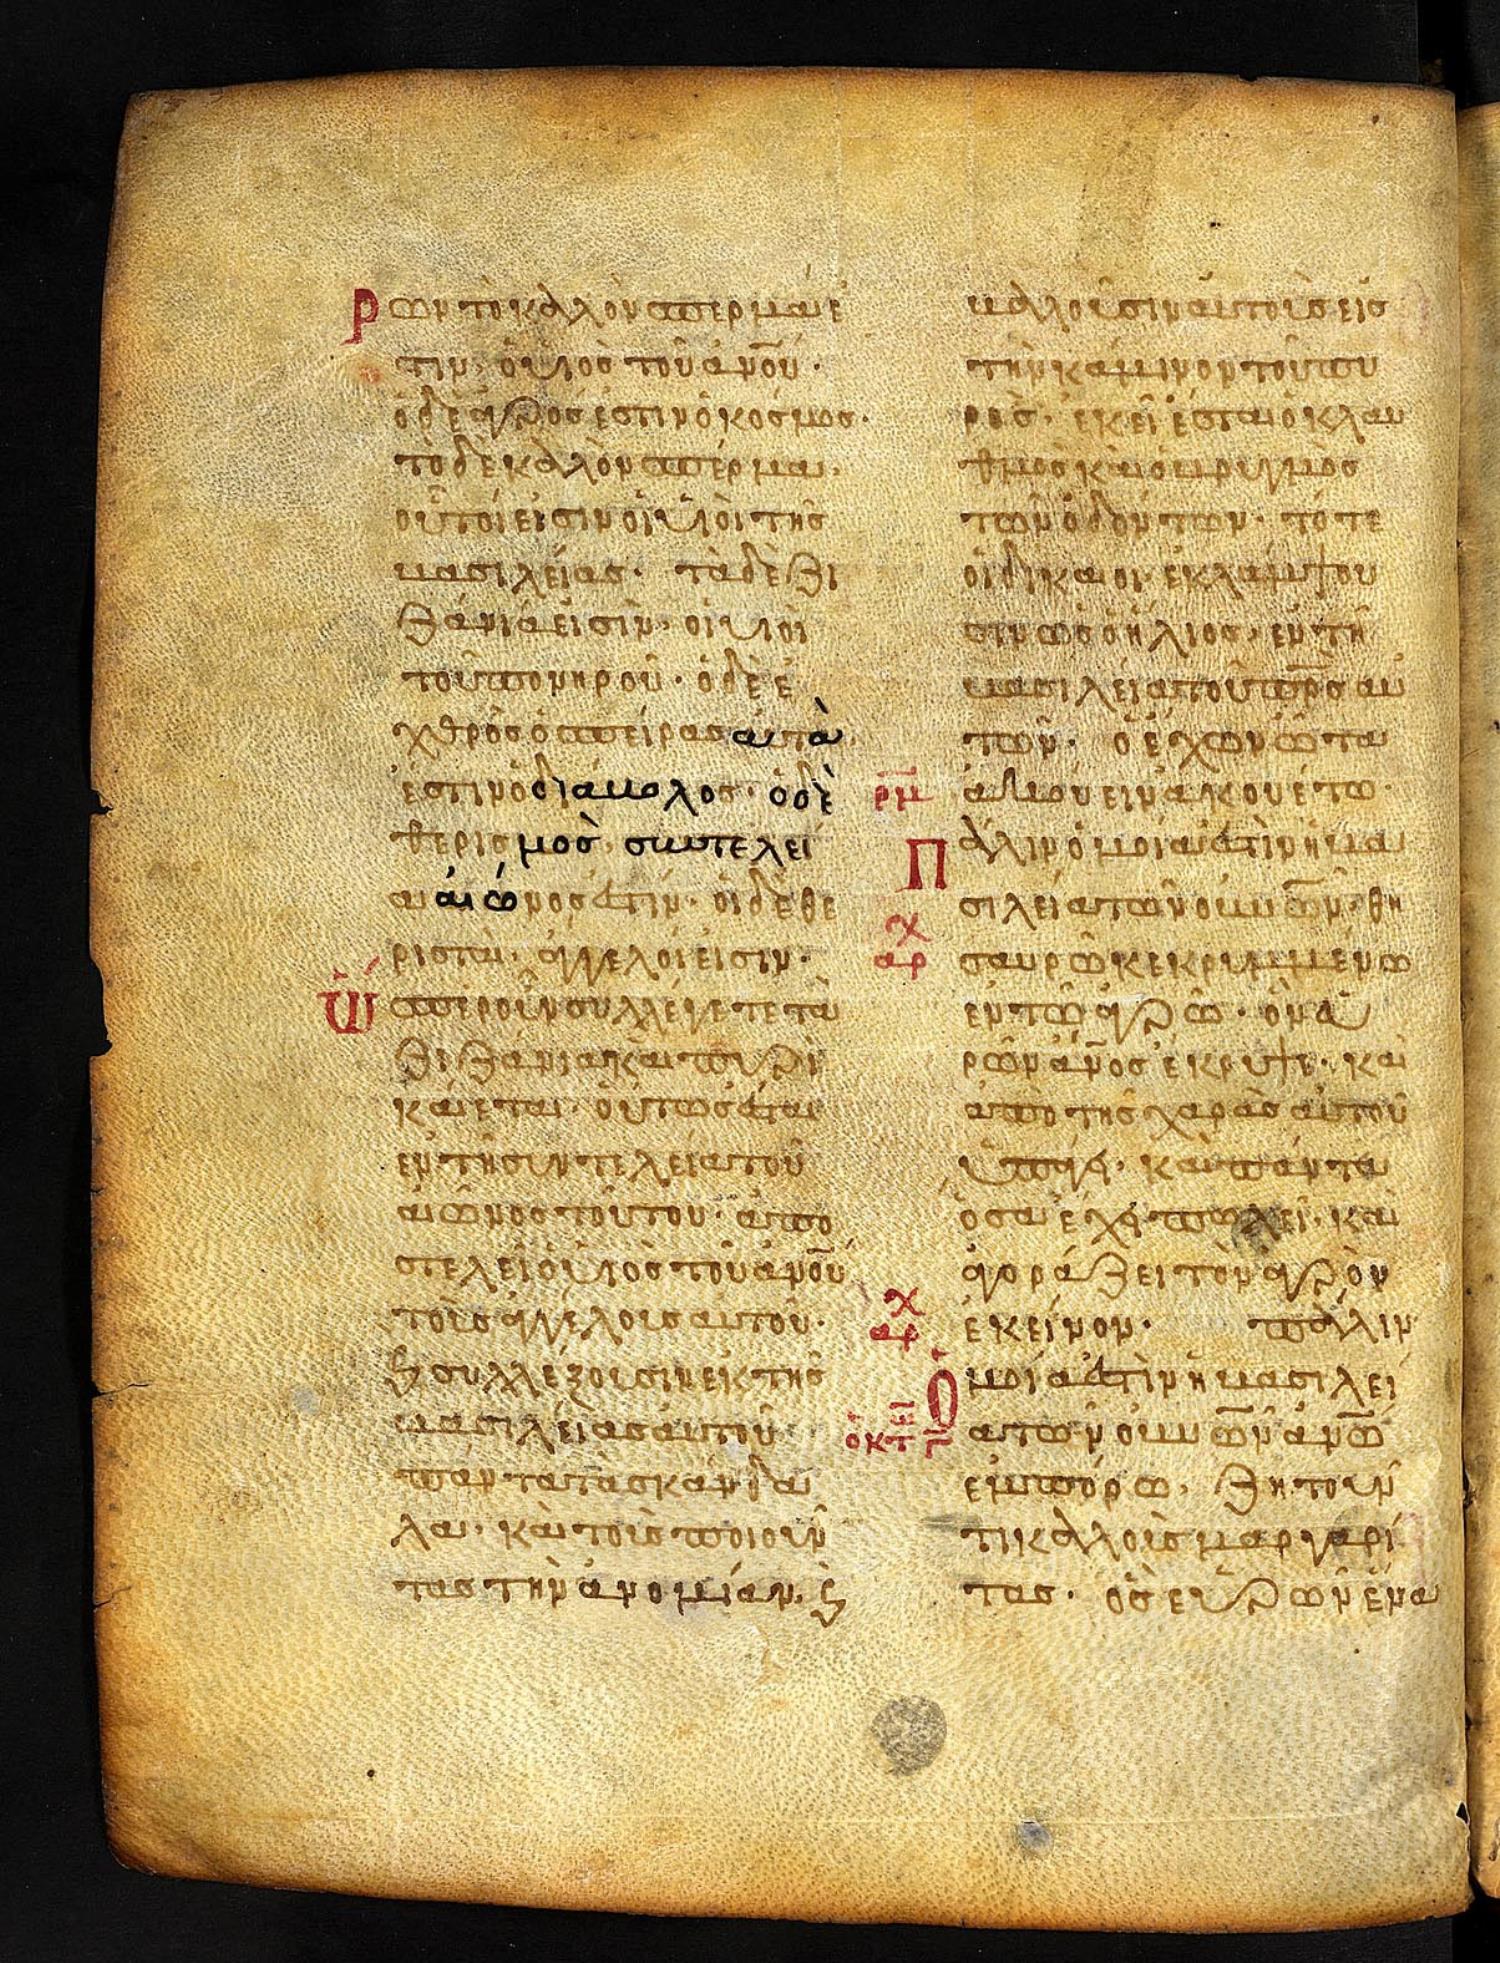 Ρων τὸ καλὸν σπέρμα ἐ
τιν· ὁ υἱὸς τοῦ ἀνου·
ὁ δὲ ἀγρός ἐστιν ὁ κόσμος·
τὸ δὲ καλὸν σπέρμα·
οὗτοί εἰσιν οἱ υἱοὶ τῆς
βασιλείας· τὰ δὲ ζι
ζάνιά εἰσιν· οἱ υἱοὶ
τοῦ πονηροῦ· ὁ δὲ ἐ
χθρὸς ὁ σπείρας αὐτὰ
ἐστιν ὁ διάβολος· ὁ δὲ
θερισμὸς συντέλει
αι αἰῶνος ἐστίν· οἱ δὲ θε
ρισταὶ ἄγγελοί εἰσιν·
Ὥσπερ οὖν συλλέγετε τὰ
ζιζάνια καὶ πυρὶ
καίεται· οὕτως ἔσται
ἐν τῇ συντελεία τοῦ
αἰῶνος τούτου· ἀπο
στελεῖ ὁ υἱὸς τοῦ ἀνου
τοῖς ἀγγέλοις αὐτοῦ·
ϗ συλλέξουσιν ἐκ τῆς
βασιλείας αὐτοῦ
πάντα τὰ σκάνδα
λα· καὶ τοὺς ποιοῦν
τας τὴν ἀνομίαν· ϗ
βαλλοῦσιν αὐτοὺς εἰς
τὴν κάμινον τοῦ πυ
ρός· ἐκεῖ ἔσται ὁ κλαυ
θμὸς καὶ ὁ βρυγμὸς
τῶν ὀδόντων· τότε
οἱ δίκαιοι ἐκλάμψου
σιν ὡς ὁ ἥλιος· ἐν τῇ
βασιλεία τοῦ πρς αὐ
τῶν· ὁ ἔχων ὦτα
ρμ ἀκούειν ἀκουέτω·
Πάλιν ὁμοία ἐστὶν ἡ βα
σιλεία τῶν οὐνων· θη
αρχ σαυρῶ κεκρυμμένω
ἐν τῶ ἀγρῶ· ὃν εὑ
ρὼν ἀνος ἔκρυψε· καὶ
ἀπὸ τῆς χαρᾶς αὐτοῦ
ὑπάγει· καὶ πάντα
ὅσα ἔχει πωλεῖ· καὶ
ἀγοράζει τὸν ἀγρὸν
αρχ ἐκεῖνον· πάλιν
Ὁμοία ἐστὶν ἡ βασιλεί
α τῶν οὐνων ἀνω
ἐμπόρω· ζητοῦν
τι καλλοὺς μαργαρί
τας· ὃς εὑρὼν ἕνα